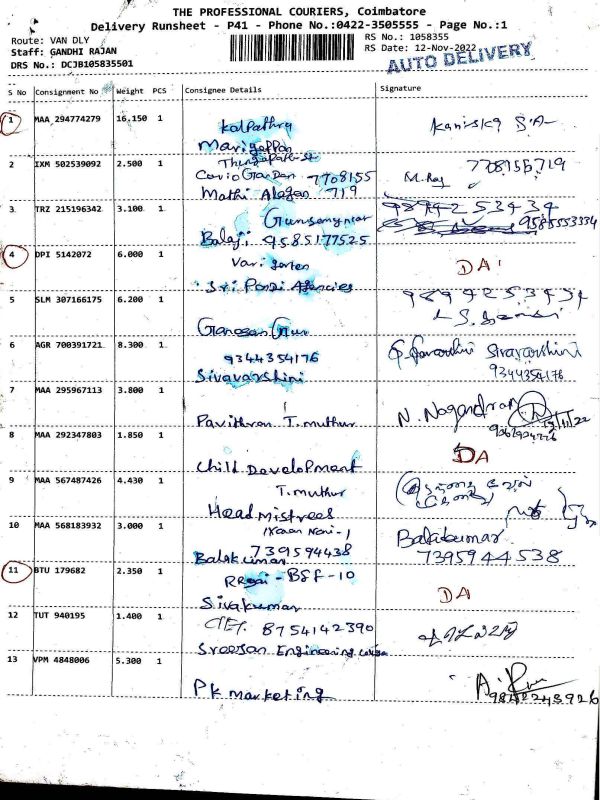 THE PROFESSIONAL COURIERS, Coimbatore
Delivery Runsheet - P41 - Phone No.:0422-3505555 - Page No.:1
Route: VAN DLY
Staff: GANDHI RAJAN
DRS No.: DCJB105835501
RS No.: 1058355
RS Date: 12-Nov-2022
AUTO DELIVERY
S No Consignment No Weight PCS Consignee Details Signature
1 MAA 294774279 16.150 1 Kalpathru Kaniska S.A
Mariyappan
2 IXM 502539092 2.500 1
7708155 M.Raj 7708155719
Mathi Alagan 719
3 TRZ 215196342 3.100 1 9894253434
Balaji 9585177525 9585553334
4 DPI 5142072 6.000 1 DA
Sri Ponni Agencies
5 SLM 307166175 6.200 1 9894253434
Ganesan
6 AGR 700391721 8.300 1 Sivavarshini
9344354176 9344354176
Sivavarshini
7 MAA 295967113 3.800 1 N. Nagendran
Pavithran T.muthur
8 MAA 292347803 1.850 1 DA
Child Development
9 MAA 567487426 4.430 1 T.muthur
Headmistress
10 MAA 568183932 3.000 1 Balakumar
7395944538 7395944538
Balakumar
11 BTU 179682 2.350 1 BSF-10 DA
Sivakumar
12 TUT 940195 1.400 1 8754142390
Sreejan Engineering
13 VPM 4848006 5.300 1
PK marketing